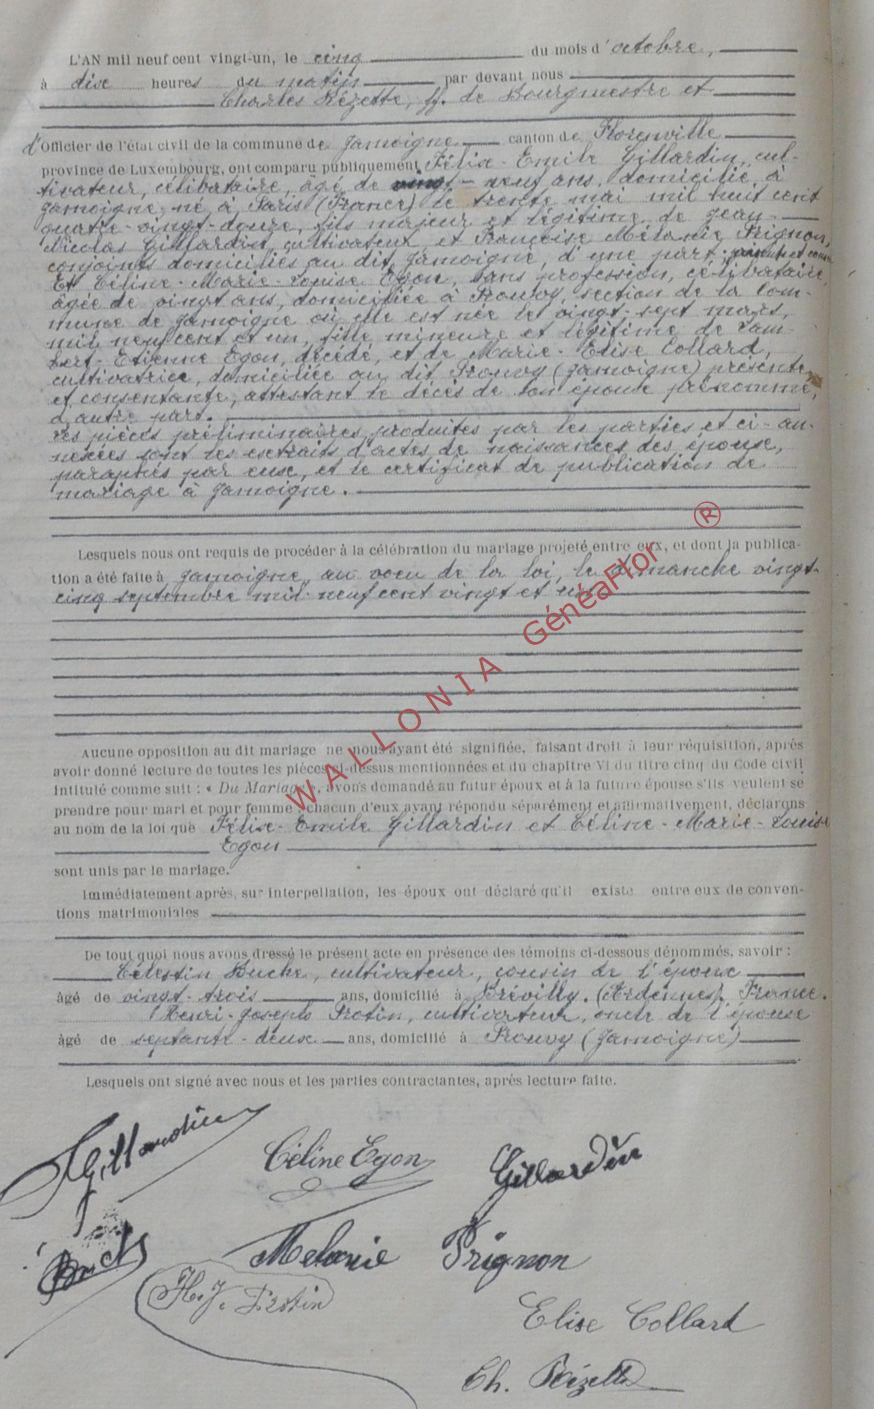 L'AN mil neuf cent vingt-un, le cinq du mois d'octobre,
à dix heures du matin par devant nous
Charles Rézette, ff. de Bourgmestre et
d'Officier de l'état civil de la commune de Jamoigne canton de Florenville
province de Luxembourg, ont comparu publiquement Félix-Emile Gillardin, cul-
tivateur, célibataire, âgé de vingt-neuf ans, domicilié à
Jamoigne, né à Paris (France) le trente mai mil huit cent
quatre-vingt-douze, fils majeur et légitime de Jean-
Nicolas Gillardin, cultivateur, et Françoise Mélanie Prignon,
conjoints domiciliés au dit Jamoigne, d'une part,
Et Céline-Marie-Louise Egon, sans profession, célibataire,
âgée de vingt ans, domiciliée à Prouvy, section de la com-
mune de Jamoigne où elle est née le vingt-sept mars,
mil neuf cent et un, fille mineure et légitime de Lam-
bert-Etienne Egon, décédé, et de Marie-Elise Collard,
cultivatrice, domiciliée au dit Prouvy (Jamoigne) présente
et consentante, attestant le décès de son époux prénommé,
d'autre part.
Les pièces préliminaires produites par les parties et ci-an-
nexées sont les extraits d'actes de naissances des époux,
paraphés par eux, et le certificat de publication de
mariage à Jamoigne.
Lesquels nous ont requis de procéder à la célébration du mariage projeté entre eux, et dont la publica-
tion a été faite à Jamoigne, au voeu de la loi, le dimanche vingt-
cinq septembre mil neuf cent vingt et un.
WALLONIA GénéaFlor ®
Aucune opposition au dit mariage ne nous ayant été signifiée, faisant droit à leur réquisition, après
avoir donné lecture de toutes les pièces ci-dessus mentionnées et du chapitre VI du titre cinq du Code civil
intitulé comme suit : « Du Mariage », avons demandé au futur époux et à la future épouse s'ils veulent se
prendre pour mari et pour femme ; chacun d'eux ayant répondu séparément et affirmativement, déclarons
au nom de la loi que Félix-Emile Gillardin et Céline-Marie-Louise
Egon
sont unis par le mariage.
Immédiatement après, sur interpellation, les époux ont déclaré qu'il existe entre eux de conven-
tions matrimoniales
De tout quoi nous avons dressé le présent acte en présence des témoins ci-dessous dénommés, savoir :
Célestin Buche, cultivateur, cousin de l'époux
âgé de vingt-trois ans, domicilié à Brévilly (Ardennes) France.
Henri-Joseph Protin, cultivateur, oncle de l'épouse
âgé de septante-deux ans, domicilié à Prouvy (Jamoigne)
Lesquels ont signé avec nous et les parties contractantes, après lecture faite.
Gillardin
Céline Egon
Gillardin
Melanie Prignon
H. J. Protin
Elise Collard
Ch. Rézette